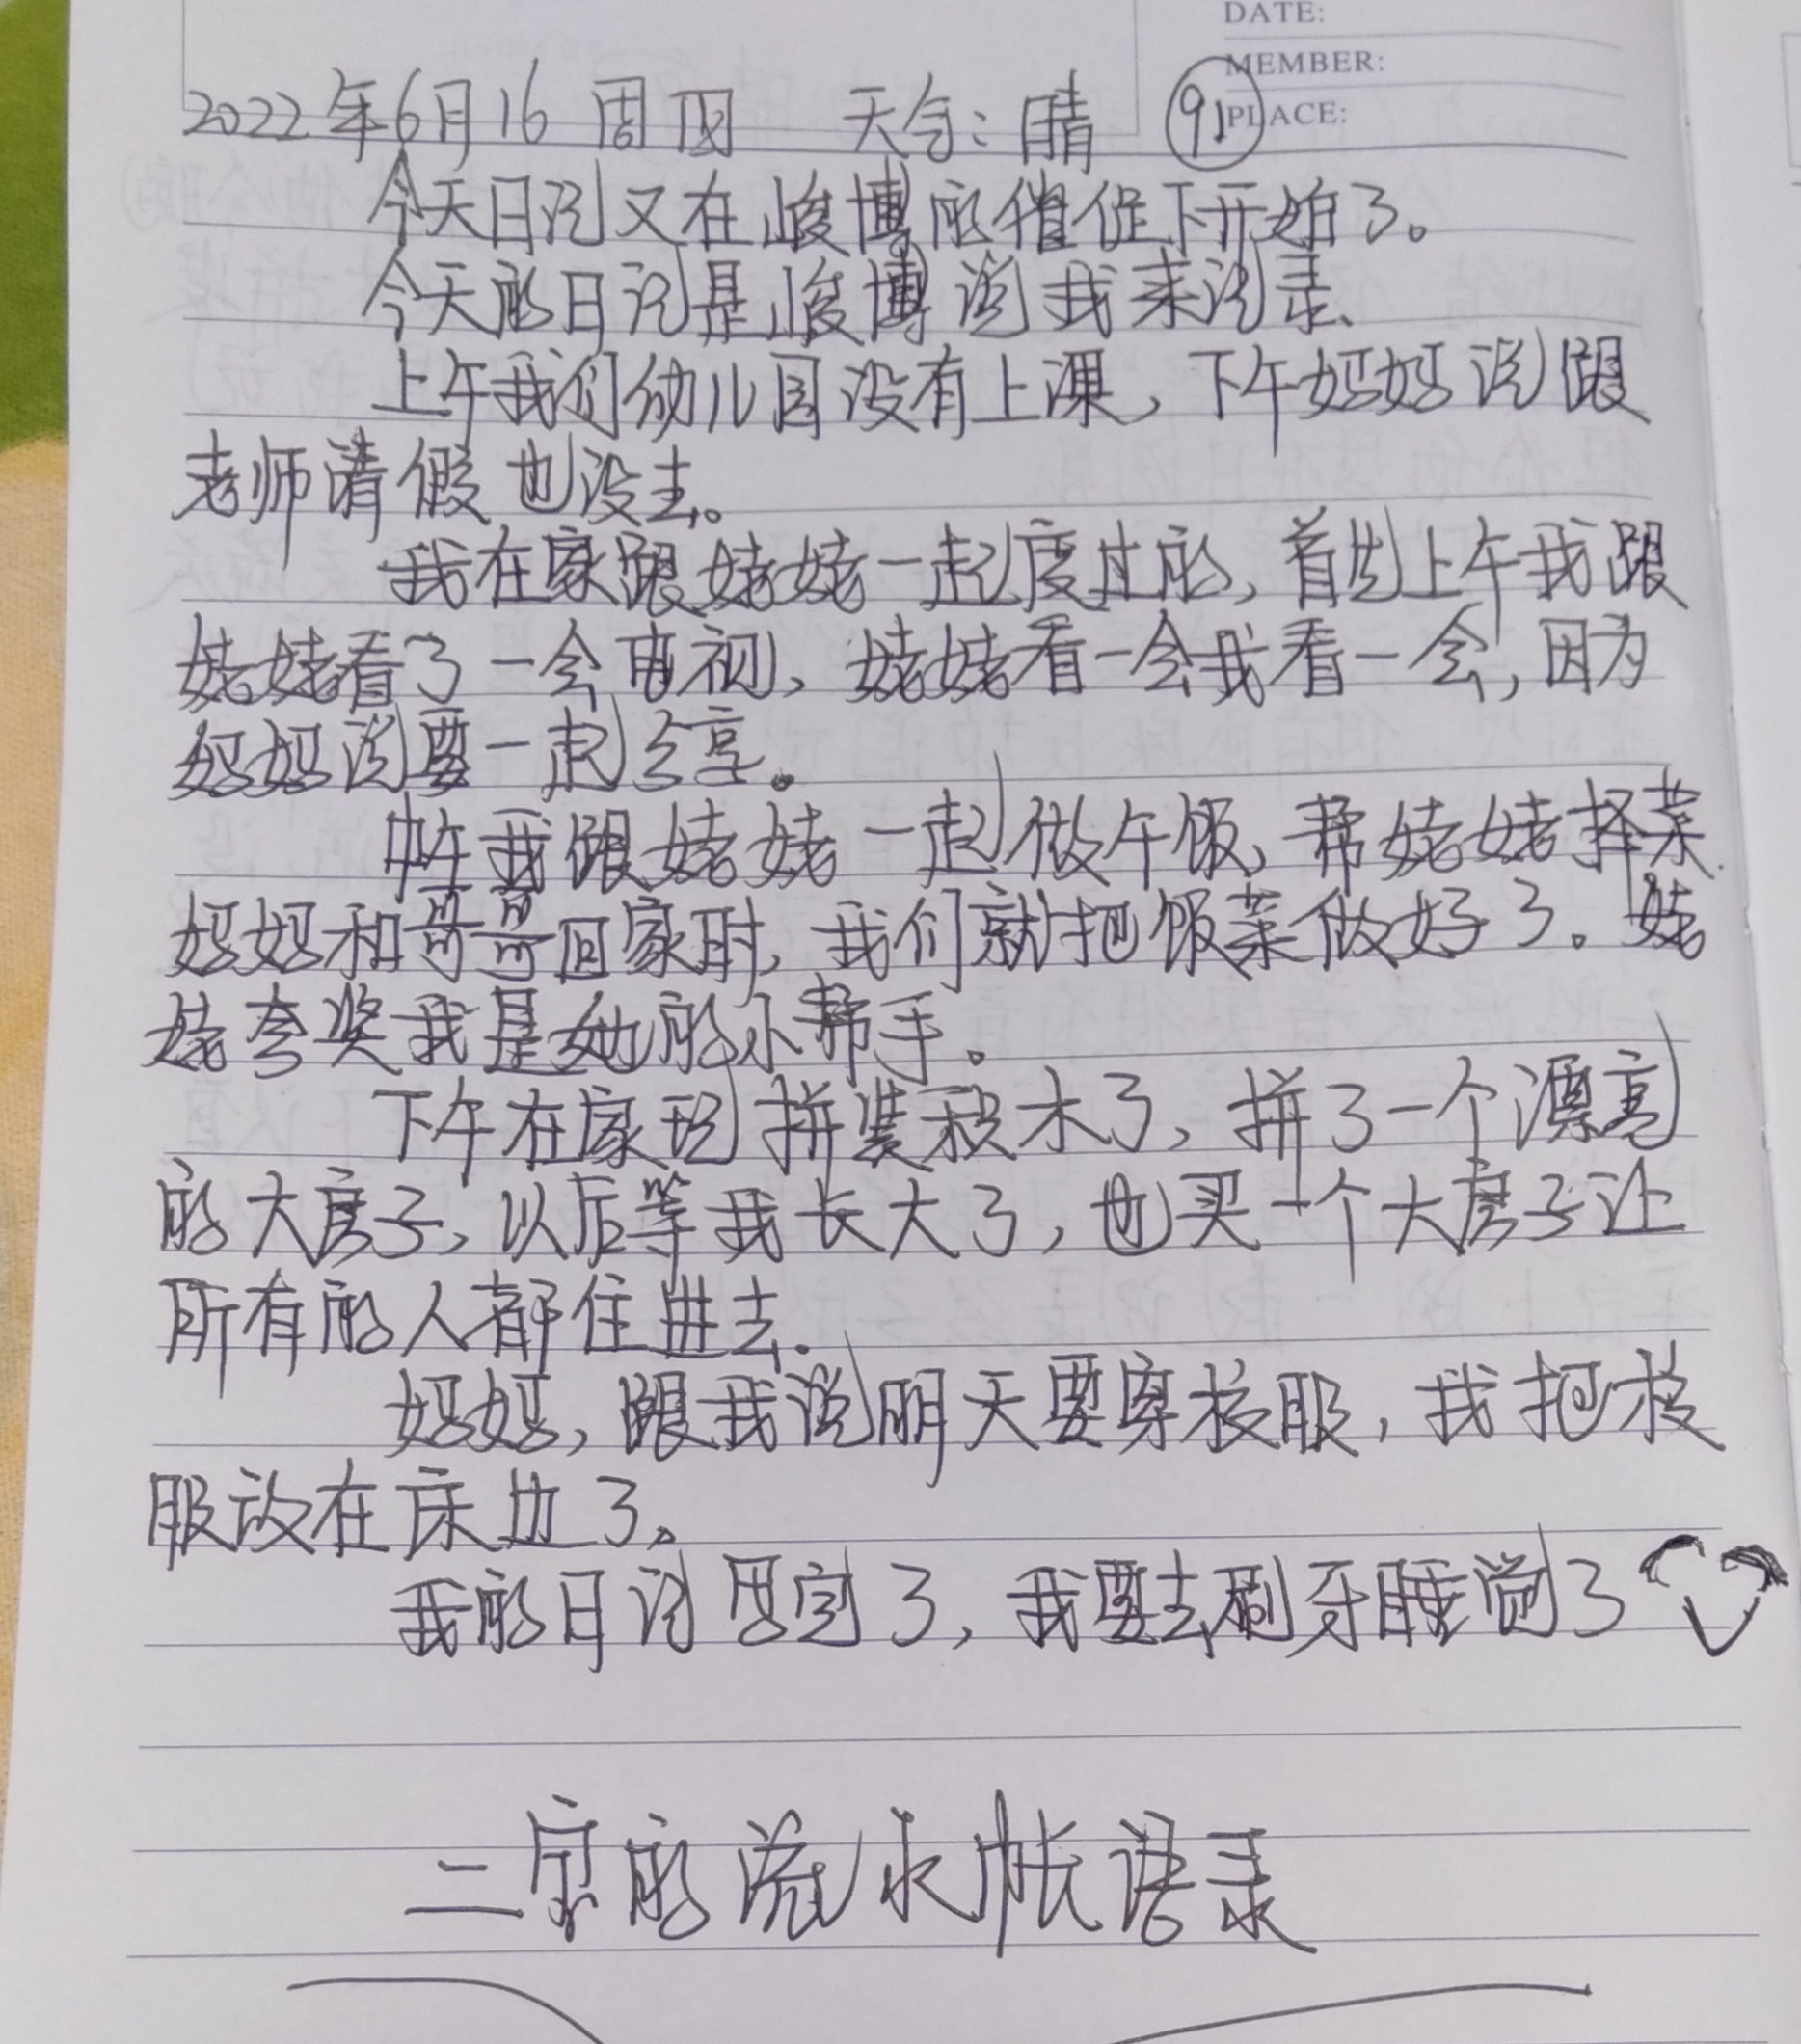 DATE:
MEMBER:
PLACE:
2022年6月16 周四 天气:晴 91
今天日记又在峻博的催促下开始了。
今天的日记是峻博说我来记录、
上午我们幼儿园没有上课,下午妈妈说跟
老师请假也没去。
我在家跟姥姥一起度过的,首先上午我跟
姥姥看了一会电视,姥姥看一会我看一会,因为
妈妈说要一起分享。
中午我跟姥姥一起做午饭,帮姥姥择菜.
妈妈和哥哥回家时,我们就把饭菜做好了。姥
姥夸奖我是她的小帮手。
下午在家玩拼装积木了,拼了一个漂亮
的大房子,以后等我长大了,也买一个大房子让
所有的人都住进去.
妈妈,跟我说明天要穿校服,我把校
服放在床边了。
我的日记写完了,我要去刷牙睡觉了
二宝的流水帐语录